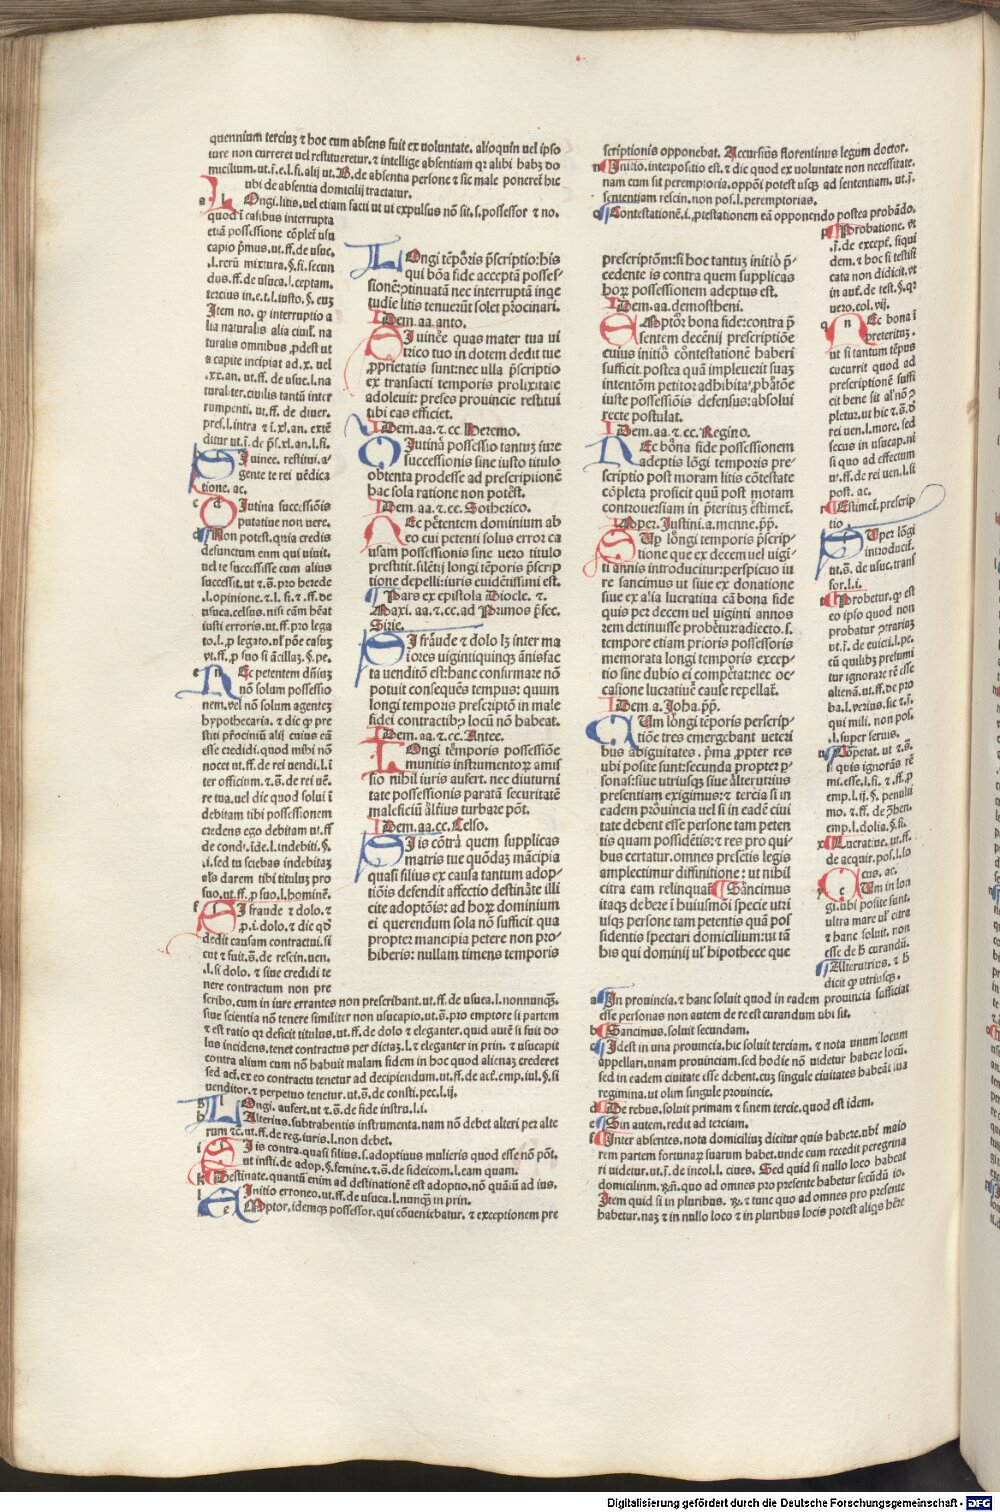 quennium terciuʒ ⁊ hoc cum absens fuit ex uoluntate. alioquin uel ipso
iure non curreret uel restitueretur. ⁊ intellige absentiam qꝛ alibi habʒ do
ubi de absentia domicilij tractatur.
Ongi.litis.uel etiam facti ut ui expulsus nō sit.s.possessor ⁊ no.
quod ī casibus interrupta
etiā possessione cōplei usu
capio p̄mus.ut.ff.de usuc.
.l.rerū mixtura.§.si.secun
dus.ff.de usuca.l.ceptam.
tercius in.e.t.l.iusto.§.euʒ
Item no. ꝙ interruptio a
lia naturalis alia ciuil'. na
turalis omnibus ꝓdest ut
a capite incipiat ad.x. uel
.xx.an. ut.ff. de usuc.l.na
turaliter.ciuilis tantū inter
rumpenti. ut.ff. de diuer.
pres.l.intra ⁊ ī.xl.an. extē
ditur ut.ī. de p̄s.xl.an.l.si.
I uincc. restitui.a
gente te rei uēdica
tione. ac.
c d Iutina successiōis
putatiue non uere.
d Non potest.quia credis
defunctum enm qui uiuit.
uel te successisse cum alius
successit.ut ⁊.s̄.pro herede
.l.opinione.⁊ l. si.⁊ ff.de
usuca.celsus. nisi cām hēat
iusti erroris.ut.ff.pro lega
to.l.ꝓ legato.ul' pōe casuʒ
vt.ff.ꝓ suo si ācillaʒ.§.pe.
e n Ec petentem dn̄iuʒ
nō solum possessio
nem.vel nō solum agenteʒ
hypothecaria. ⁊ dic ꝙ pre
stiti p̄rociniū alij cuius eā
esse credidi.quod mihi nō
nocet ut.ff.de rei uendi.l.ī
ter officium.⁊.s̄.de rei uē.
re tua.uel dic quod solui ī
debitam tibi possessionem
credens ego debitam ut.ff
de condi.īde.l.indebiti.§.
.i.sed tu sciebas indebitaʒ
als darem tibi tituluʒ pro
suo.ut.ff.ꝓ suo.l.hominē.
I fraude ⁊ dolo.⁊
ꝓ.i.dolo.⁊ dic qđ
dedit causam contractui.si
cut ⁊ fuit.s̄.de rescin.uen.
.l.si dolo. ⁊ siue credidi te
nere contractum non pre
scribo.cum in iure errantes non prescribant.ut.ff.de usuca.l.nonnunqʒ.
siue scientia nō tenere similiter non usucapio.ut.s̄.pro emptore si partem
⁊ est ratio qꝛ deficit titulus.ut.ff.de dolo ⁊ eleganter.quid autē si fuit do
lus incidens.tenet contractus per dictaʒ.l.⁊ eleganter in prin. ⁊ usucapit
contra alium cum nō habuit malam fidem in hoc quod alienaʒ crederet
sed act.ex eo contractu tenetur ad decipiendum.ut.ff.de act.emp.iul.§.si
uenditor.⁊ perpetuo tenetur.ut.s̄.de consti.pec.l.ij.
g l Ongi. aufert.ut ⁊.s̄.de fide instru.l.i.
h Alterius.subtrabentis instrumenta.nam nō debet alteri per alte
rum ⁊c.ut.ff.de reg.iuris.l.non debet.
I is contra.quasi filius.s.adoptiuus mulieris quod esse nō pōt.
ut insti.de adop.§.femine.⁊.s̄.de fideicom.l.eam quam.
k Destinate.quantū enim ad destinationē est adoptio.nō quātū ad ius.
l Initio erroneo.ut.ff.de usuca.l.nunqʒ in prin.
Mptor.idemqʒ possessor.qui cōueniebatur. ⁊ exceptionem pre
LOngi tēporis p̄scriptio:his
qui bōa fide acceptā posses-
sionē:ꝯtinuatā nec interruptā inqe
tudie litis tenuerūt solet p̄rocinari.
IDem.aa.anto.
SI uincē quas mater tua ui
trico tuo in dotem dedit tue
ꝓprietatis sunt:nec ulla p̄scriptio
ex transacti temporis prolixitate
adoleuit: preses prouincie restitui
tibi eas efficiet.
IDem.aa.⁊.cc. Heremo.
DIutina possessio tantuʒ iure
successionis sine iusto titulo
obtenta prodesse ad prescriptionē
hac sola ratione non potēst.
IDem.aa.⁊.cc. Gothetico.
NEc pētentem dominium ab
eo cui petenti solus error ca
usam possessionis sine uero titulo
prestitit.silētij longi tēporis p̄scrip
tione depelli:iuris euidētissimi est.
Pars ex epistola Diocle. ⁊.
Maxi. aa.⁊.cc.ad Primos p̄sec.
Sirie.
SI frāude ⁊ dolo lʒ inter ma
iores uigintiquinqʒ ānis fac
ta uenditō est:hanc confirmare nō
potuit consequēs tempus: quum
longi temporis prescriptō in male
fidei contractibꝫ locū nō habeat.
IDem.aa.⁊.cc. Antec.
LOngi tēmporis possessiōe
munitis instrumentoꝝ amis
sio nihil iuris aufert. nec diuturni
tate possessionis paratā securitatē
maleficiū āltēius turbare pōt.
IDem.aa.cc. Celso.
SI is cōtrā quem supplicas
matris tue quōdaʒ mācipia
quasi filius ex causa tantum adop-
tiōis defendit affectio destināte illi
cite adoptōis: ad hoꝝ dominium
ei querendum sola nō sufficit qua
propter mancipia petere non pro-
hiberis: nullam timens temporis
scriptionis opponebat. Accursius florentinus legum doctor.
n Initio.interpositio est.⁊ die quod ex uoluntate non necessitate.
nam cum sit peremptoria.oppōi potest usqʒ ad sententiam.ut.ſ.
sententiam rescin.non pos.l.peremptorias.
o Contestationē.i.ꝓtestationem eā opponendo postea probādo.
prescriptōm:si hoc tantuʒ initiō p̄-
cedente is contra quem supplicas
hoꝝ possessionem adeptus est.
IDem.aa.demostheni.
EMptōr bona fide:contra p̄
sentem decēnij prescriptiōe
cuius initiō cōntestatiōnē haberi
sufficit.postea quā impleuerit suaʒ
intentōm petitor adhibita',ꝓbātōe
iuste possessiōis defensus:absolui
recte postulat.
IDem.aa.⁊.cc. Regino.
NEc bōna fide possessionem
adeptis lōgi temporis pre-
scriptio post moram litis cōtestate
cōpleta proficit quū post motam
controuersiam in p̄teritūʒ ēstimet̄.
IMper. Justini.a.menne.p̄p̄.
SUp lōngi temporis p̄scrip-
tione que ex decem uel uigī-
ti annis introducitur:perspicuo iu
re sancimus ut siue ex donatione
siue ex alia lucratiua cā bona fide
quis per decem uel uiginti annos
rem detinuisse probētur:adiecto.s.
tempore etiam prioris possessoris
memorata longi temporis excep-
tio sine dubio ei compētat:nec oc-
casione lucratiuē cause repellat̄.
IDem a. Joha.p̄p̄.
CUm lōngi tēporis perscrip-
tiōe tres emergebant ueteri
bus abiguitates. p̄ma ꝓpter res
ubi posite sunt:secunda propter p-
sonas:siue utriusqʒ siue ālterutrius
presentiam exigimus:⁊ tercia si in
eadem prōuincia uel si in eadē ciui
tate debent esse persone tam peten
tis quam possidētis:⁊ res pro qui-
bus certatur.omnes prefetis legis
amplectimur diffinitione: ut nihil
citra eam relinquat̄ Sāncimus
itaqʒ debere ī huiusmōi specie utri
usqʒ persone tam petentis quā pos
sidentis spectari domicilium:ut tā
bis qui dominij ul' hipothece que
Probatione. vt
.ī.de except̄. siqui
dem.⁊ hoc si testist
cata non didicit.vt
in aut̄.de test.§.qꝛ
uero.col.vij.
q n Ec bona ī
preteritūʒ.
ut si tantum tēpus
cucurrit quod ad
prescriptionē suffi
rei uen.l.more.sed
secus in usucap.nī
si quo ad effectum
vt.ff.de rei uen.l.si
post. ac.
r Estimet̄.prescrip
tio.
s Uper lōgi
introducit̄.
ut.s̄.de usuc.trans
for.l.i.
t Probetur.ꝙ est
eo ipso quod non
probatur ꝯtrariuʒ
ut.ī.de euict̄.l.pe.
cū quilibʒ presumi
tur ignorare rē esse
alienā.ut.ff.de pro
ba.l.verius.sic ⁊.ſ.
qui mili. non pos.
.l.super seruis.
u Cōpetat. ut ⁊.s̄.
si quis ignorās rē
mi.esse.l.si.⁊.ff.ꝓ
emp.l.ij.§. penulti
mo.⁊.ff.de ꝯhen.
emp.l.dolia.§.si.
x Lucratiue.ut.ff.
de acquir.pos.l.lo
cus. ac.
y c Um in lon
gi.ubi posite sunt.
ultra mare ul' citra
⁊ hanc soluit. non
esse de h̄ curandū.
Alterutrius.⁊ h̄
dicit ꝙ utriusqʒ.
a In prouincia.⁊ hanc soluit quod in eadem prouincia sufficiat
esse personas non autem de re est curandum ubi sit.
b Sancimus.soluit secundam.
c Idest in una prouincia.hic soluit terciam.⁊ nota unum locum
appellari.unam prouinciam.sed hodie nō uidetur habere locū.
sed in eadem ciuitate esse debent.cuʒ singule ciuitates habeāt sua
regimina.ut olim singule prouincie.
d De rebus.soluit primam ⁊ finem tercie.quod est idem.
e Sin autem.redit ad terciam.
f Inter absentes.nota domiciliuʒ dicitur quis habere.ubi maio
rem partem fortunaꝝ suarum habet.unde cum recedit peregrina
ri uidetur.ut.ī.de incol.l.ciues. Sed quid si nullo loco habeat
domicilium. R̄n̄.quo ad omnes pro presente habetur secūdū io.
Item quid si in pluribus. R̄. ⁊ tunc quo ad omnes pro presente
habetur.naʒ ⁊ in nullo loco ⁊ in pluribus locis potest aliqs hēre
Digitalisierung gefördert durch die Deutsche Forschungsgemeinschaft - DFG